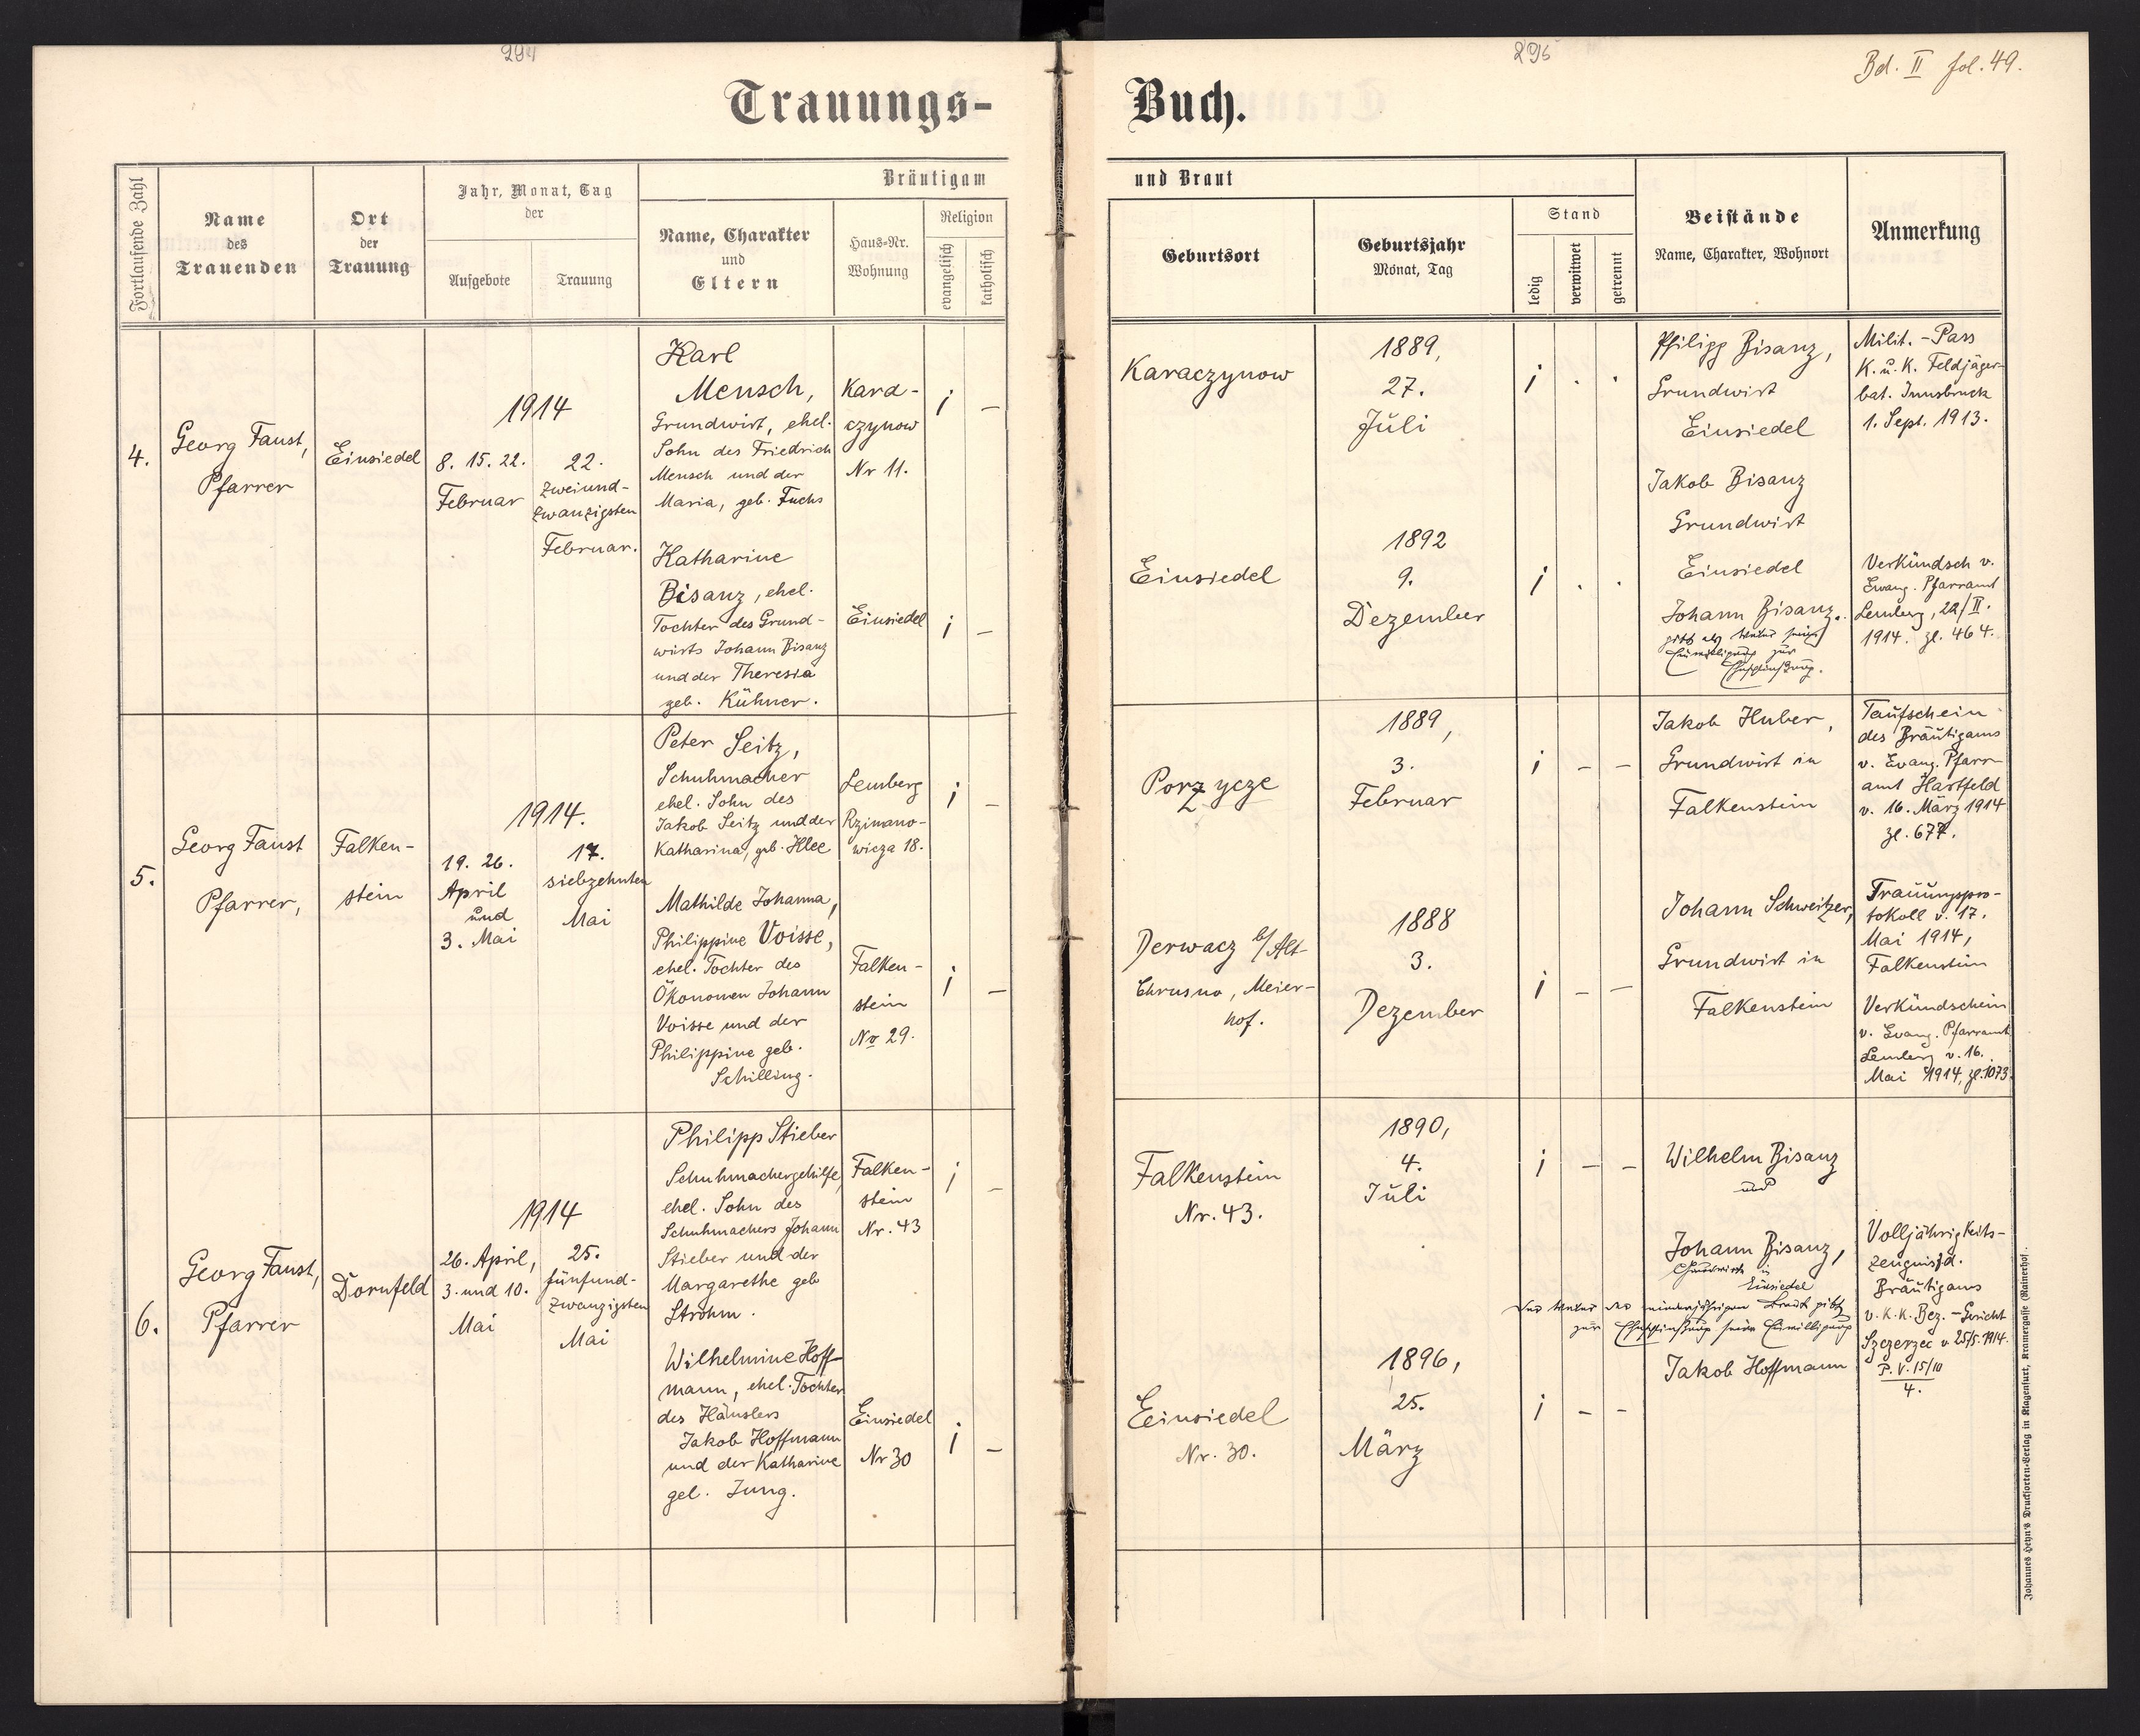 294
295
Bd. II fol. 49.
Trauungs-
Buch.
Fortlaufende Zahl
Name
des
Trauenden
Ort
der
Trauung
Jahr, Monat, Tag
der
Aufgebote
Trauung
Bräutigam
Name, Charakter
und
Eltern
Haus-Nr.
Wohnung
Religion
evangelisch
katholisch
und Braut
Geburtsort
Geburtsjahr
Monat, Tag
Stand
ledig
verwitwet
getrennt
Beistände
Name, Charakter, Wohnort
Anmerkung
4.
Georg Faust,
Pfarrer
Einsiedel
1914
8. 15. 22.
Februar
22.
zweiund-
zwanzigsten
Februar.
Karl
Mensch,
Grundwirt, ehel.
Sohn des Friedrich
Mensch und der
Maria, geb. Fuchs
Kara-
czynow
Nr 11.
i
–
Katharine
Bisanz, ehel.
Tochter des Grund-
wirts Johann Bisanz
und der Theresia
geb. Kühner.
Einsiedel
i
–
Karaczynow
1889,
27.
Juli
i . .
Einsiedel
1892
9.
Dezember
i . .
Philipp Bisanz,
Grundwirt
Einsiedel
Jakob Bisanz
Grundwirt
Einsiedel
Johann Bisanz
gibt als Vater seine
Einwilligung zur
Eheschließung.
Milit.-Pass
K. u. K. Feldjäger-
bat. Innsbruck
1. Sept. 1913.
Verkündsch v.
Evang. Pfarramt
Lemberg, 22/II.
1914. zl. 464.
5.
Georg Faust
Pfarrer,
Falken-
stein
1914.
19. 26.
April
und
3. Mai
17.
siebzehnten
Mai
Peter Seitz,
Schuhmacher
ehel. Sohn des
Jakob Seitz und der
Katharina, geb. Klee
Lemberg
Rzimano-
wicza 18.
i
–
Mathilde Johanna,
Philippine Voisse,
ehel. Tochter des
Ökonomen Johann
Voisse und der
Philippine geb.
Schilling.
Falken-
stein
No 29.
i
–
Porzycze
1889,
3.
Februar
i – –
Derwacz b/Alt
Chrusno, Meier-
hof.
1888
3.
Dezember
i – –
Jakob Huber,
Grundwirt in
Falkenstein
Johann Schweitzer,
Grundwirt in
Falkenstein
Taufschein
des Bräutigams
v. Evang. Pfarr-
amt Hartfeld
v. 16. März 1914
zl. 677.
Trauungspro-
tokoll v. 17.
Mai 1914,
Falkenstein
Verkündschein
v. Evang. Pfarramt
Lemberg v. 16.
Mai 1914, zl. 1073.
6.
Georg Faust,
Pfarrer
Dornfeld
1914
26. April,
3. und 10.
Mai
25.
fünfund-
zwanzigsten
Mai
Philipp Stieber
Schuhmachergehilfe,
ehel. Sohn des
Schuhmachers Johann
Stieber und der
Margarethe geb
Strohm.
Falken-
stein
Nr. 43
i
–
Wilhelmine Hoff-
mann, ehel. Tochter
des Häuslers
Jakob Hoffmann
und der Katharine
geb. Jung.
Einsiedel
Nr 30
i
–
Falkenstein
Nr. 43.
1890,
4.
Juli
i – –
Einsiedel
Nr. 30.
1896,
25.
März
i – –
Wilhelm Bisanz
und
Johann Bisanz,
Grundwirte in
Einsiedel
Der Vater der minderjährigen Braut gibt
zur Eheschließung seine Einwilligung
Jakob Hoffmann
Volljährigkeits-
zeugnis d.
Bräutigams
v. K. K. Bez.-Gericht
Szczerzec v. 25/5. 1914.
P. V. 15/10
4.
Johannes Heyn's Drucksorten-Verlag in Klagenfurt, Kramergasse (Rainerhof).